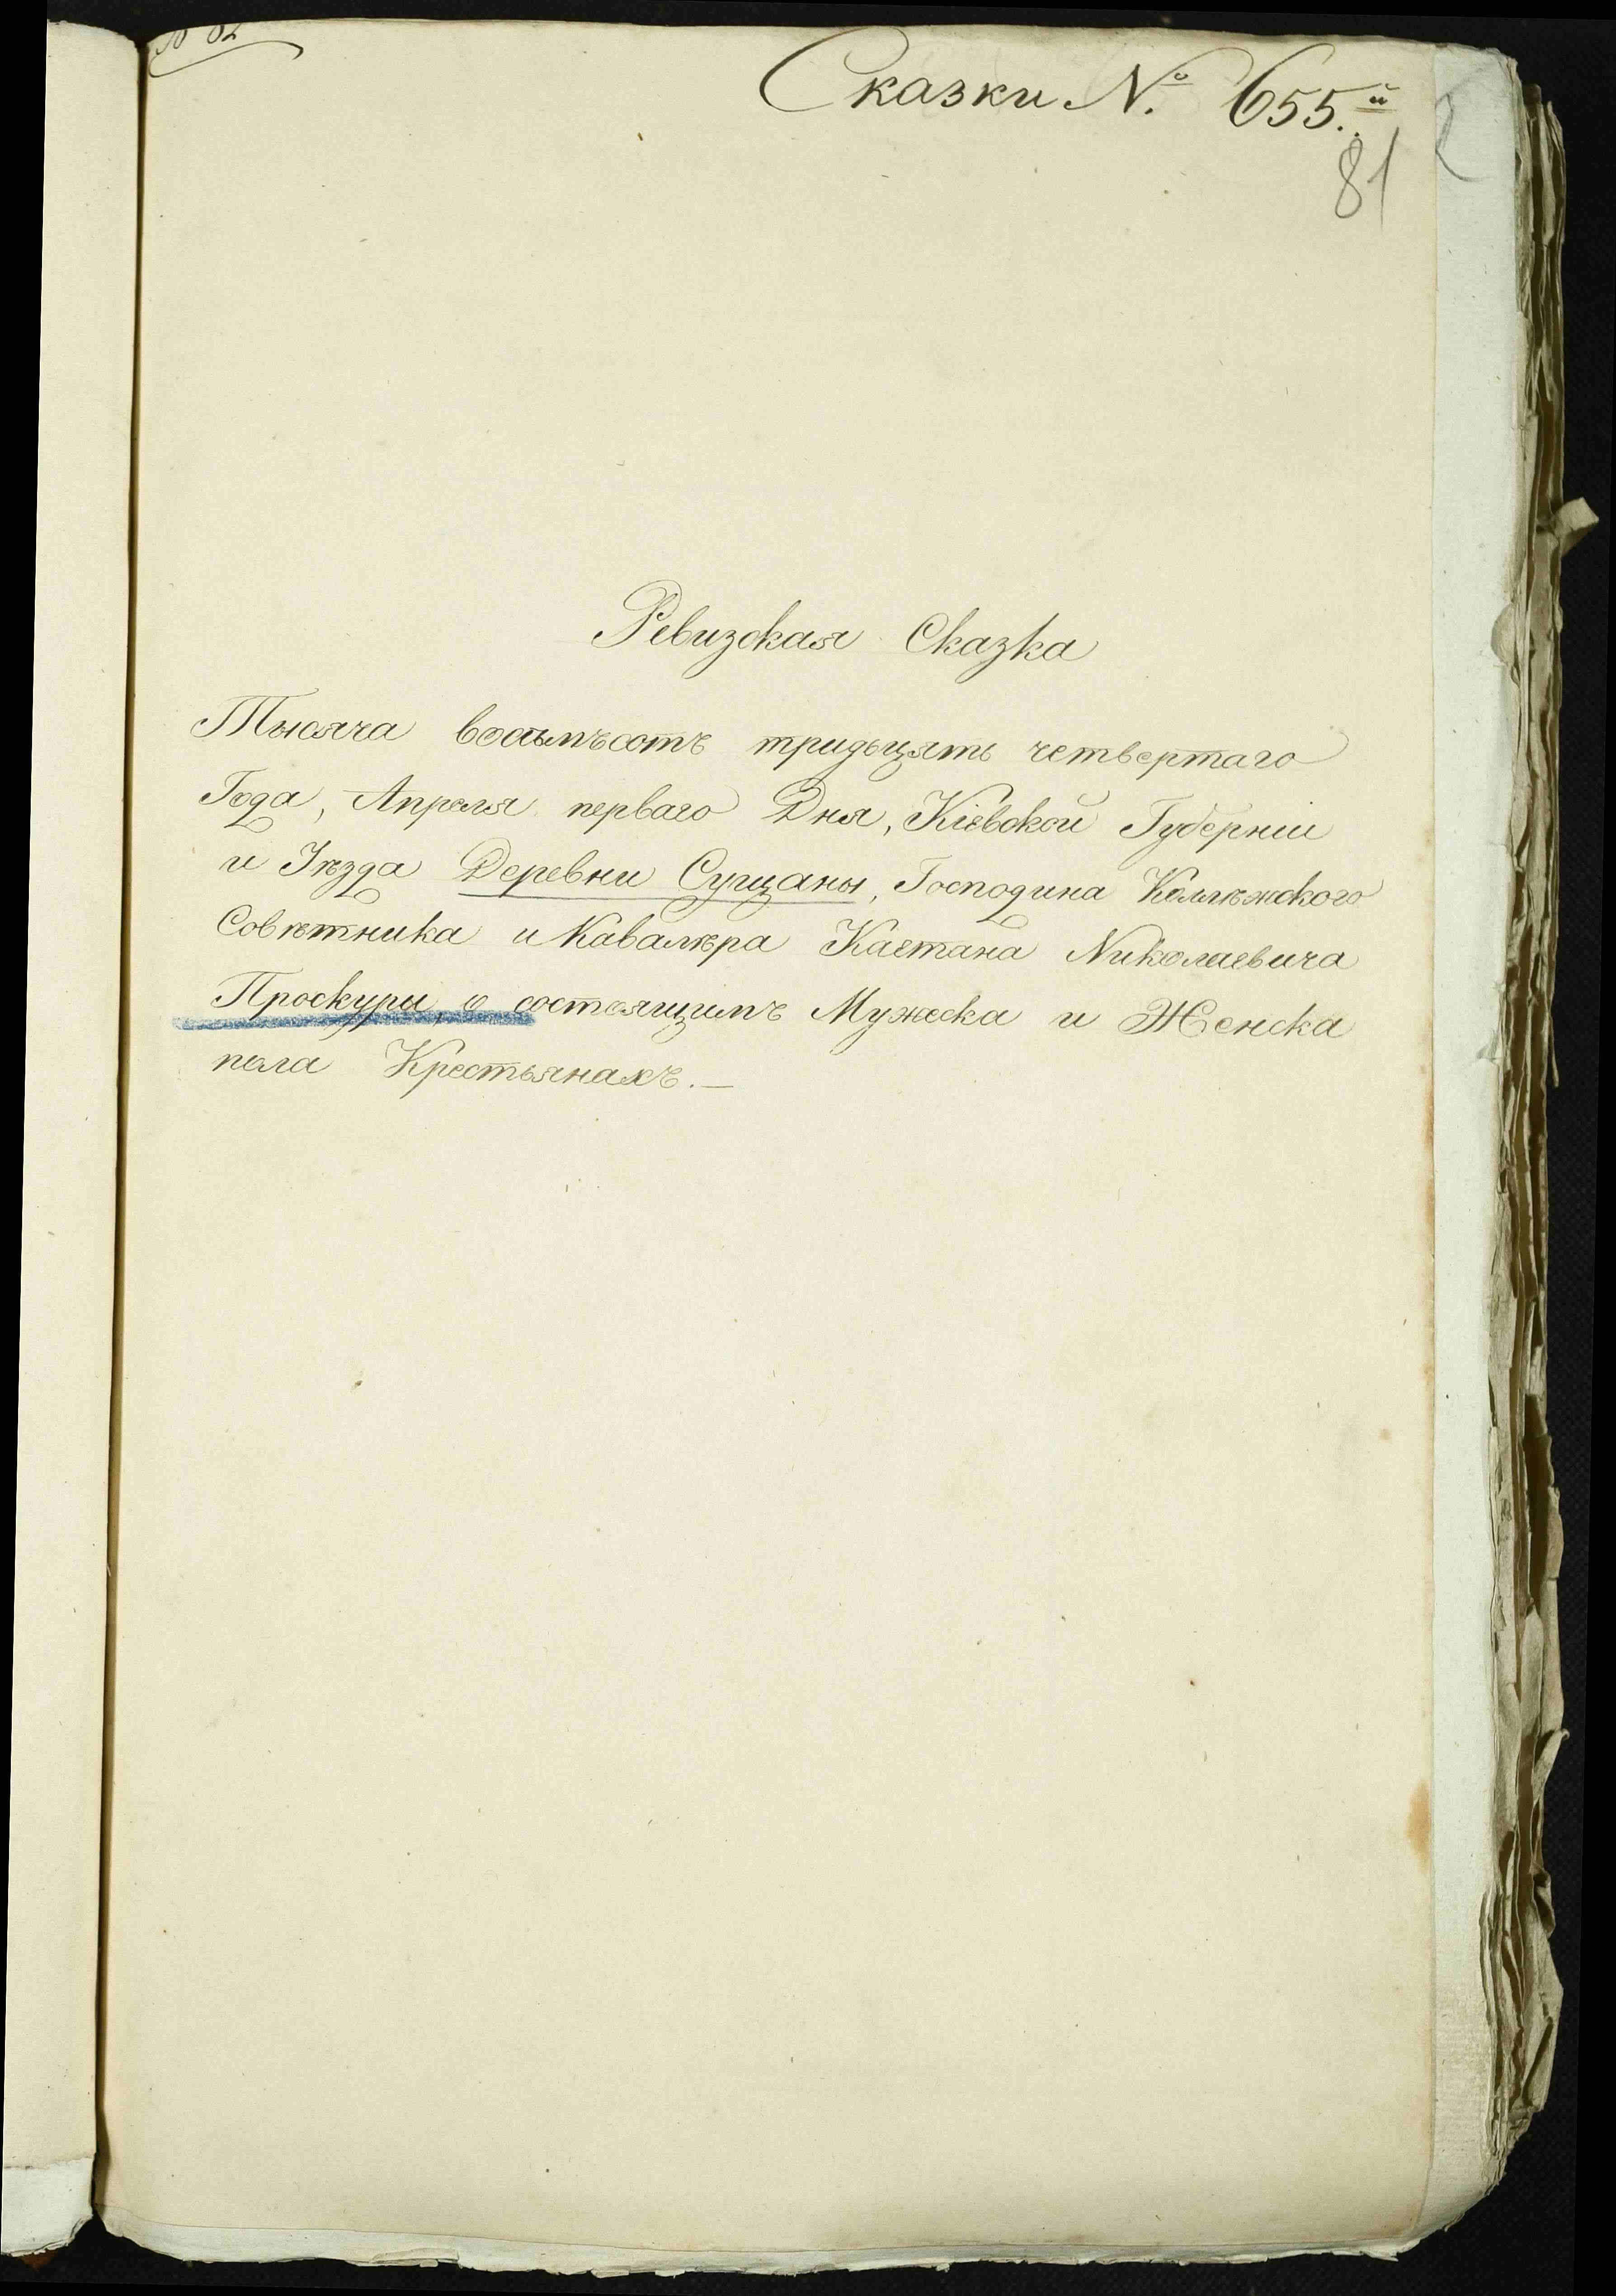 Сказки №. 655.й
81
Ревизская Сказка
Тысяча восьмъсотъ тридьцять четвертаго
Года, Апреля перваго Дня, Кіевской Губерніи
и Уѣзда Деревни Сущаны, Господина Коллѣжского
Совѣтника и Кавалѣра Каетана Николаевича
Проскуры, о состоящимъ Мужеска и Женска
пола Крестьянахъ.—